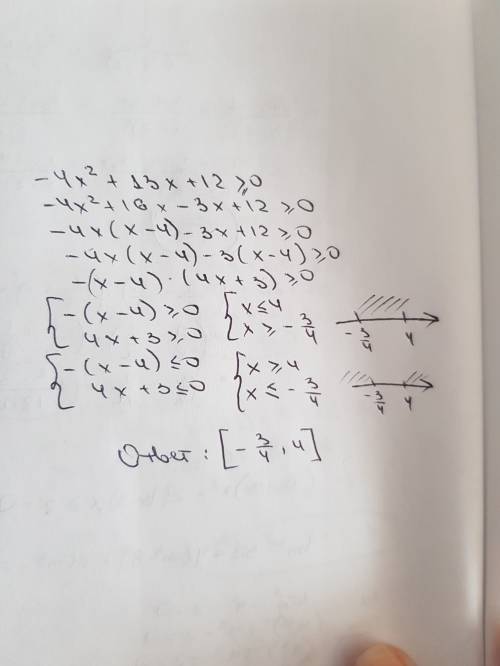 -4x² + 13x + 12 ≥ 0
-4x² + 16x - 3x + 12 ≥ 0
-4x(x-4) - 3x + 12 ≥ 0
-4x(x-4) - 3(x-4) ≥ 0
-(x-4) · (4x+3) ≥ 0
{ -(x-4) ≥ 0 { x ≤ 4
4x+3 ≥ 0 x ≥ -3/4 -3/4 4
{ -(x-4) ≤ 0 { x ≥ 4
4x+3 ≤ 0 x ≤ -3/4 -3/4 4
Ответ: [-3/4, 4]